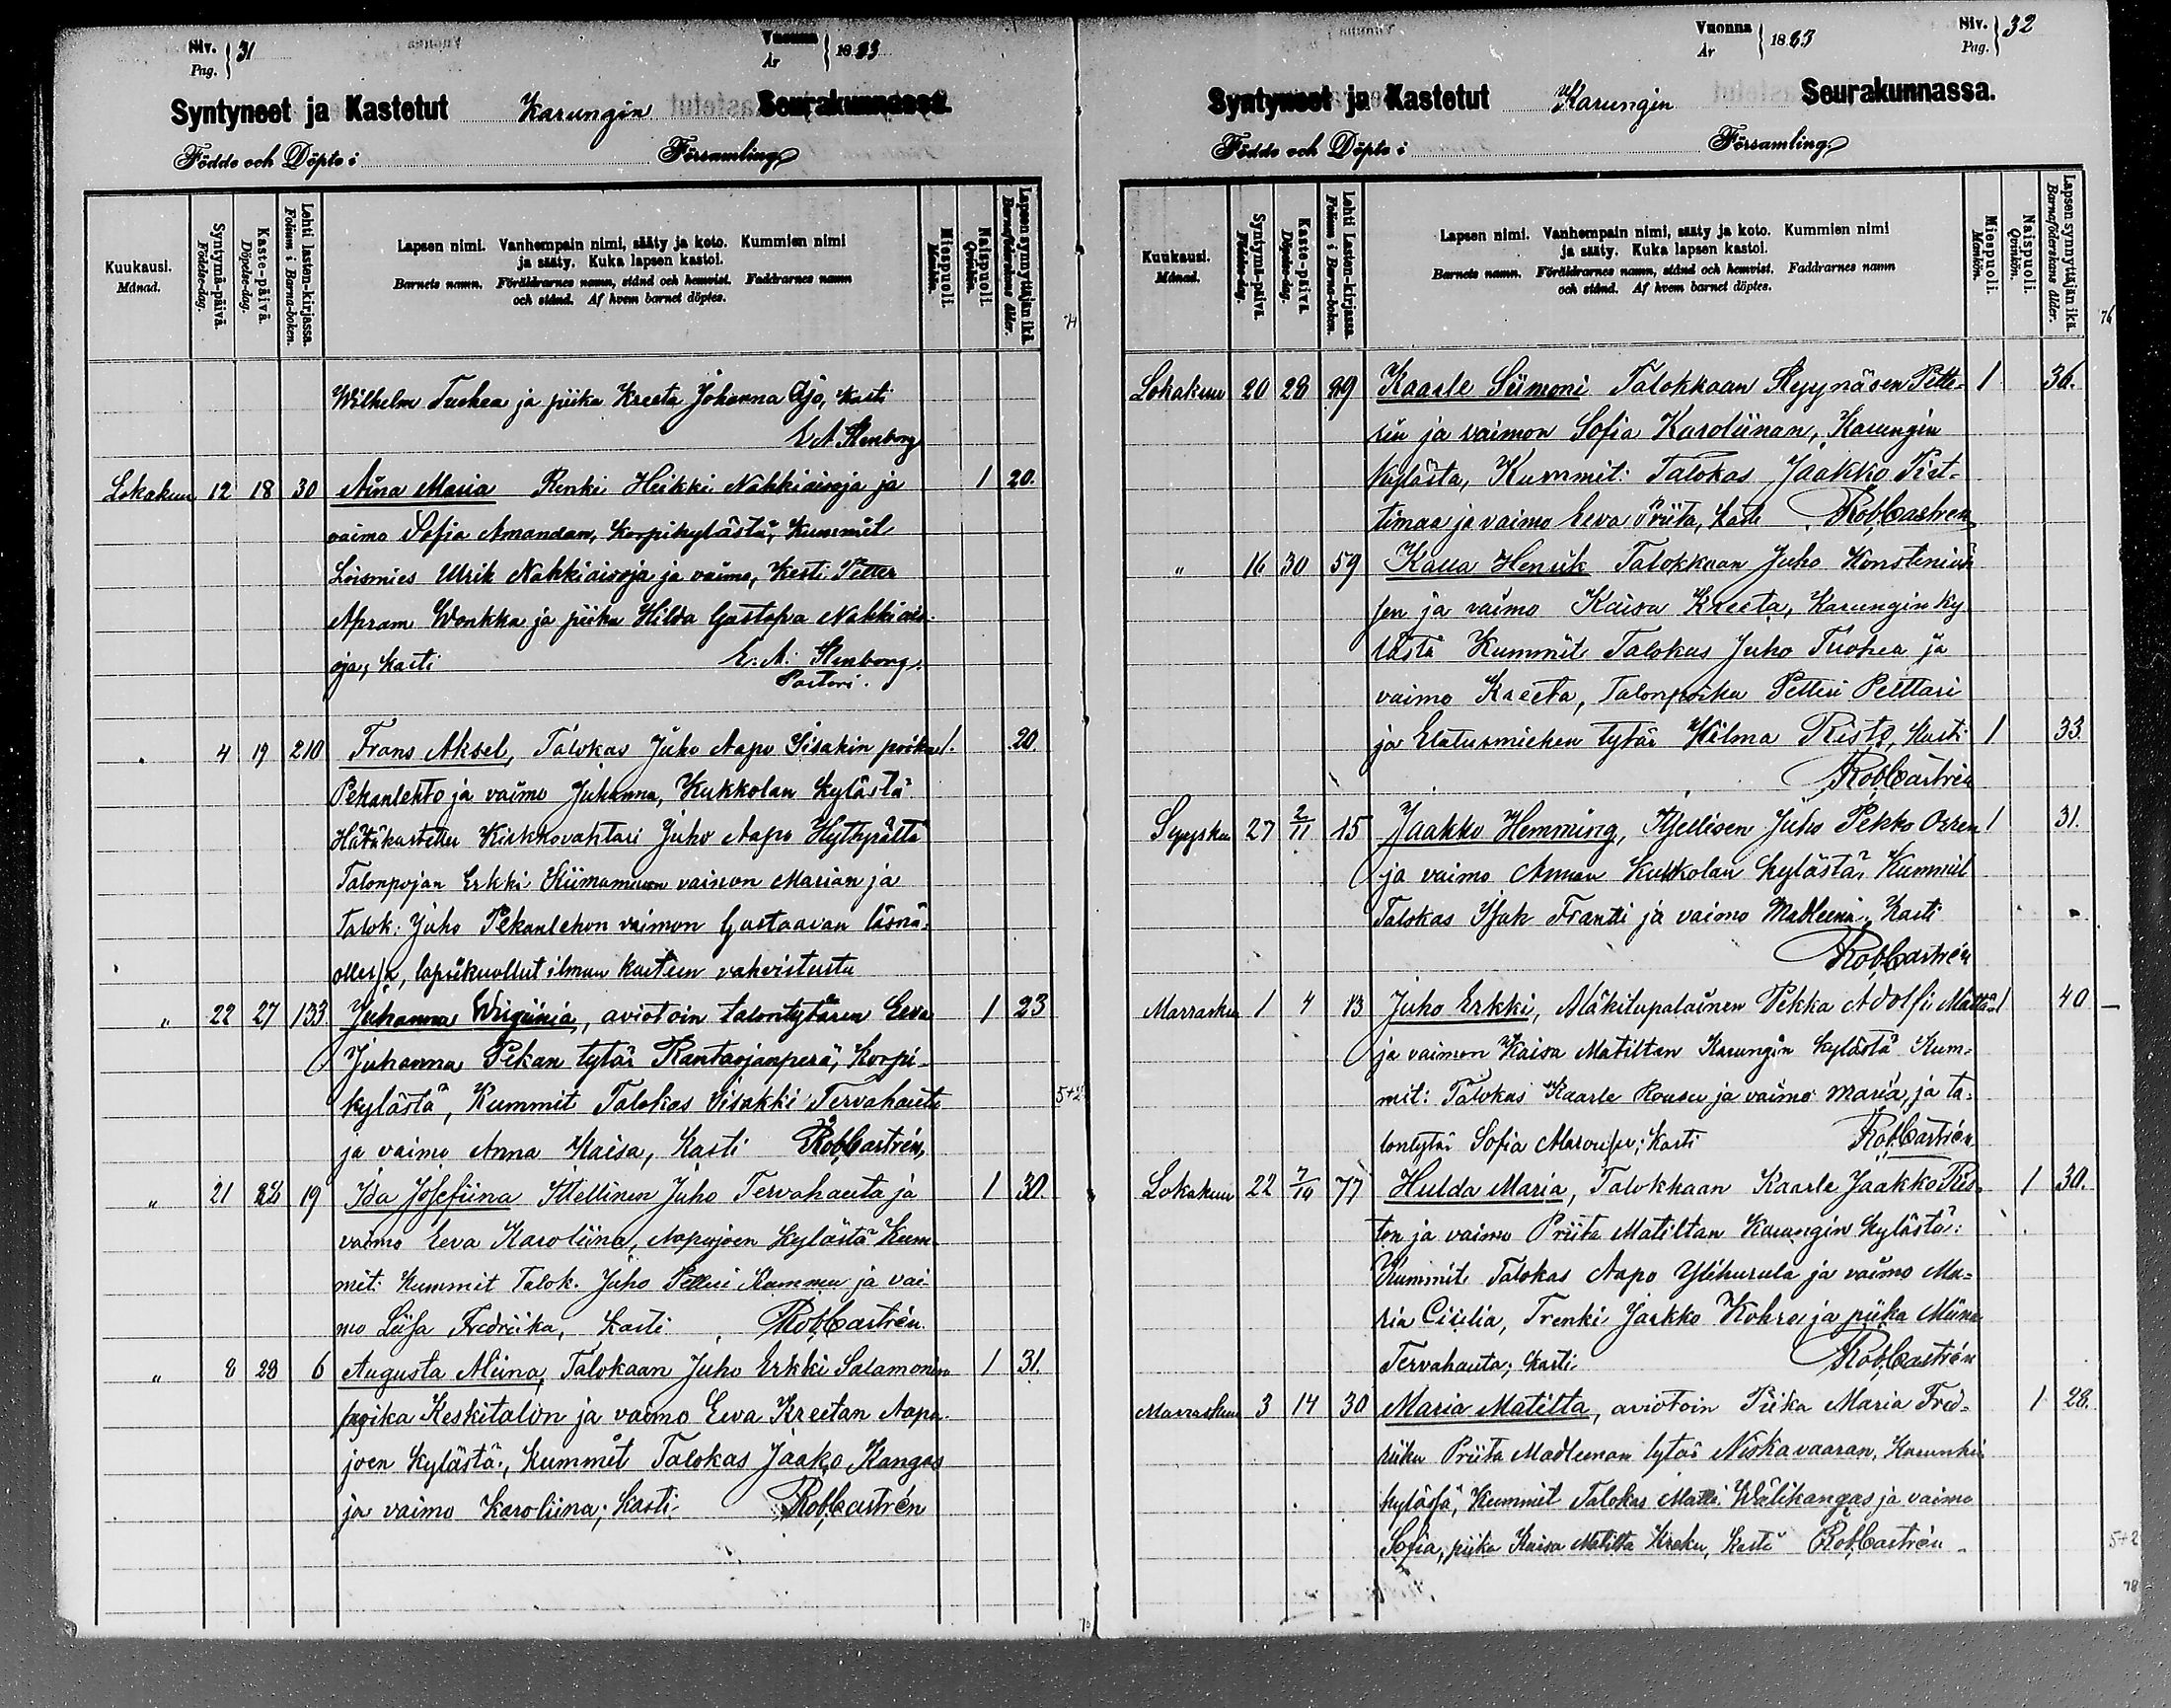 Niv. Pag. 31
Vuonna År 1883
Syntyneet ja Kastetut Karungin Seurakunnassa.
Födde och Döpte i Församling
Kuukausi. Månad.
Syntymä-päivä. Födelse-dag.
Kaste-päivä. Döpelse-dag.
Lehti lasten-kirjassa. Folium i Barna-boken.
Lapsen nimi. Vanhempain nimi, sääty ja koto. Kummien nimi
ja sääty. Kuka lapsen kastoi.
Barnets namn. Föräldrarnes namn, stånd och hemvist. Faddrarnes namn
och stånd. Af hvem barnet döptes.
Miespuoli. Mankön.
Naispuoli. Qvinkön.
Lapsen synnyttäjän ikä. Barnaföderskans ålder.
Wilhelm Tuohea ja piika Kreeta Johanna Ajo, Kasti
E. A. Stenborg
Lokakuu 12 18 30 Aina Maria Renki Heikki Nahkiaisoja ja 1 20.
vaimo Sofia Amandan, Korpikylästä, Kummit
Loismies Ulrik Nahkiaisoja ja vaimo, Kesti Petter
Apram Wonkka ja piika Hilda Gustafva Nahkiais-
oja, Kasti E. A. Stenborg.
Pastori.
4 19 210 Frans Aksel, Talokas Juho Aapo Iisakin poika 1. 20.
Pekanlehto ja vaimo Juhanna, Kukkolan Kylästä
Hätäkastettu Kirkkovahtari Juho Aapo Hythyältä
Talonpojan Erkki Kiimamaan vaimon Marian ja
Talok. Juho Pekanlehon vaimon Gustaavan läsnä-
ollessa, lapsikuollut ilman kasteen vahvistusta
" 22 27 133 Juhanna Wirginia, aviotoin talontytären Eeva 1 23
Juhanna Pekan tytär Rantaojanperä, Korpi-
kylästä, Kummit Talokas Iisakki Tervahauta
ja vaimo Anna Kaisa, Kasti Rob Castrén,
" 21 28 19 Ida Josefiina Itellinen Juho Tervahauta ja 1 30.
vaimo Eeva Karoliina, Aapajoen Kylästä Kum-
mit: Kummit Talok. Juho Petteri Rammu ja vai-
mo Liisa Fredriika, Kasti Rob Castrén.
" 8 28 6 Augusta Miina, Talokaan Juho Erkki Salamonin 1 31.
poika Keskitalon ja vaimo Eeva Kreetan Aapa-
joen Kylästä, Kummit Talokas Jaako Kangas
ja vaimo Karoliina; Kasti Rob Castrén
5+2
Vuonna År 1883
Niv. Pag. 32
Syntyneet ja Kastetut Karungin Seurakunnassa.
Födde och Döpte i Församling
Kuukausi. Månad.
Syntymä-päivä. Födelse-dag.
Kaste-päivä. Döpelse-dag.
Lehti Lasten-kirjassa. Folium i Barna-boken.
Lapsen nimi. Vanhempain nimi, sääty ja koto. Kummien nimi
ja sääty. Kuka lapsen kastoi.
Barnets namn. Föräldrarnes namn, stånd och hemvist. Faddrarnes namn
och stånd. Af hvem barnet döptes.
Miespuoli. Mankön.
Naispuoli. Qvinkön.
Lapsen synnyttäjän ikä. Barnaföderskans ålder.
76
Lokakuu 20 28 Kaarle Siimoni Talokkaan Ryynäsen Pette- 1 36.
rin ja vaimon Sofia Karoliinan, Karungin
kylästä, Kummit: Talokas Jaakko Piet-
timaa ja vaimo Eeva Priita, Kasti Rob Castrén
" 16 30 59 Kalla Henrik Talokkaan Juho
sen ja vaimo Kaisa Kreeta, Karungin ky-
lästä Kummit Talokas Juho Tuohea ja
vaimo Kreeta, Talonpoika Petteri Pelttari
ja Elatusmiehen tytär Hilma Risto, Kasti 1 33.
Rob Castrén
Syysku 27 2/11 15 Jaakko Hemming, Itjellisen Juho Pekko Ozren 1 31.
ja vaimo Annan Kukkolan kylästä, Kummit
Talokas Isak Frantti ja vaimo Madleena, Kasti
Rob Castrén
Marrasku 1 4 13 Juho Erkki, Mäkitupalainen Pekka Adolfi Mattila 1 40
ja vaimon Kaisa Matiltan Karungin Kylästä Kum-
mit: Talokas Kaarle Rousu ja vaimo Maria, ja ta-
lontytär Sofia; Kasti Rob. Castrén.
Lokakuu 22 77 Hulda Maria, Talokkaan Kaarle Jaakko Ris- 1 30.
ton ja vaimo Priita Matiltan Karungin Kylästä:
Kummit Talokas Aapo Ylihurula ja vaimo Ma-
ria Cicilia, Trenki Jaakko Kohro ja piika Miina
Tervahauta; Kasti Rob Castrén
Marraskuu 3 14 30 Maria Matilta, aviotoin Piika Maria Fred- 1 28.
riika Priita Madleenan tytär Niskavaaran, Karunkin
kylästä, Kummit Talokas Matti Wälikangas ja vaimo
Sofia, piika Kaisa Matilta Kreku, Kasti Rob Castrén.
5+2
78